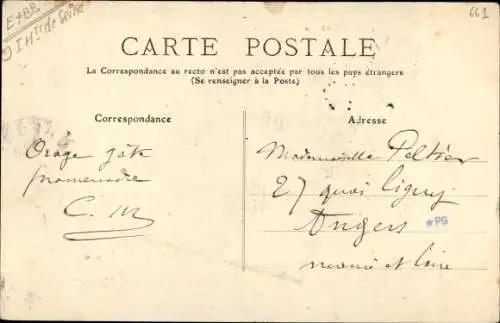 E+BB
Int de Seine
661
CARTE POSTALE
La Correspondance au recto n'est pas acceptée par tous les pays étrangers
(Se renseigner à la Poste)
Correspondance
Adresse
Orage gâte
promenade
C. M
Mademoiselle Peltier
27 quai Ligny
Angers
*PB
Maine et Loire